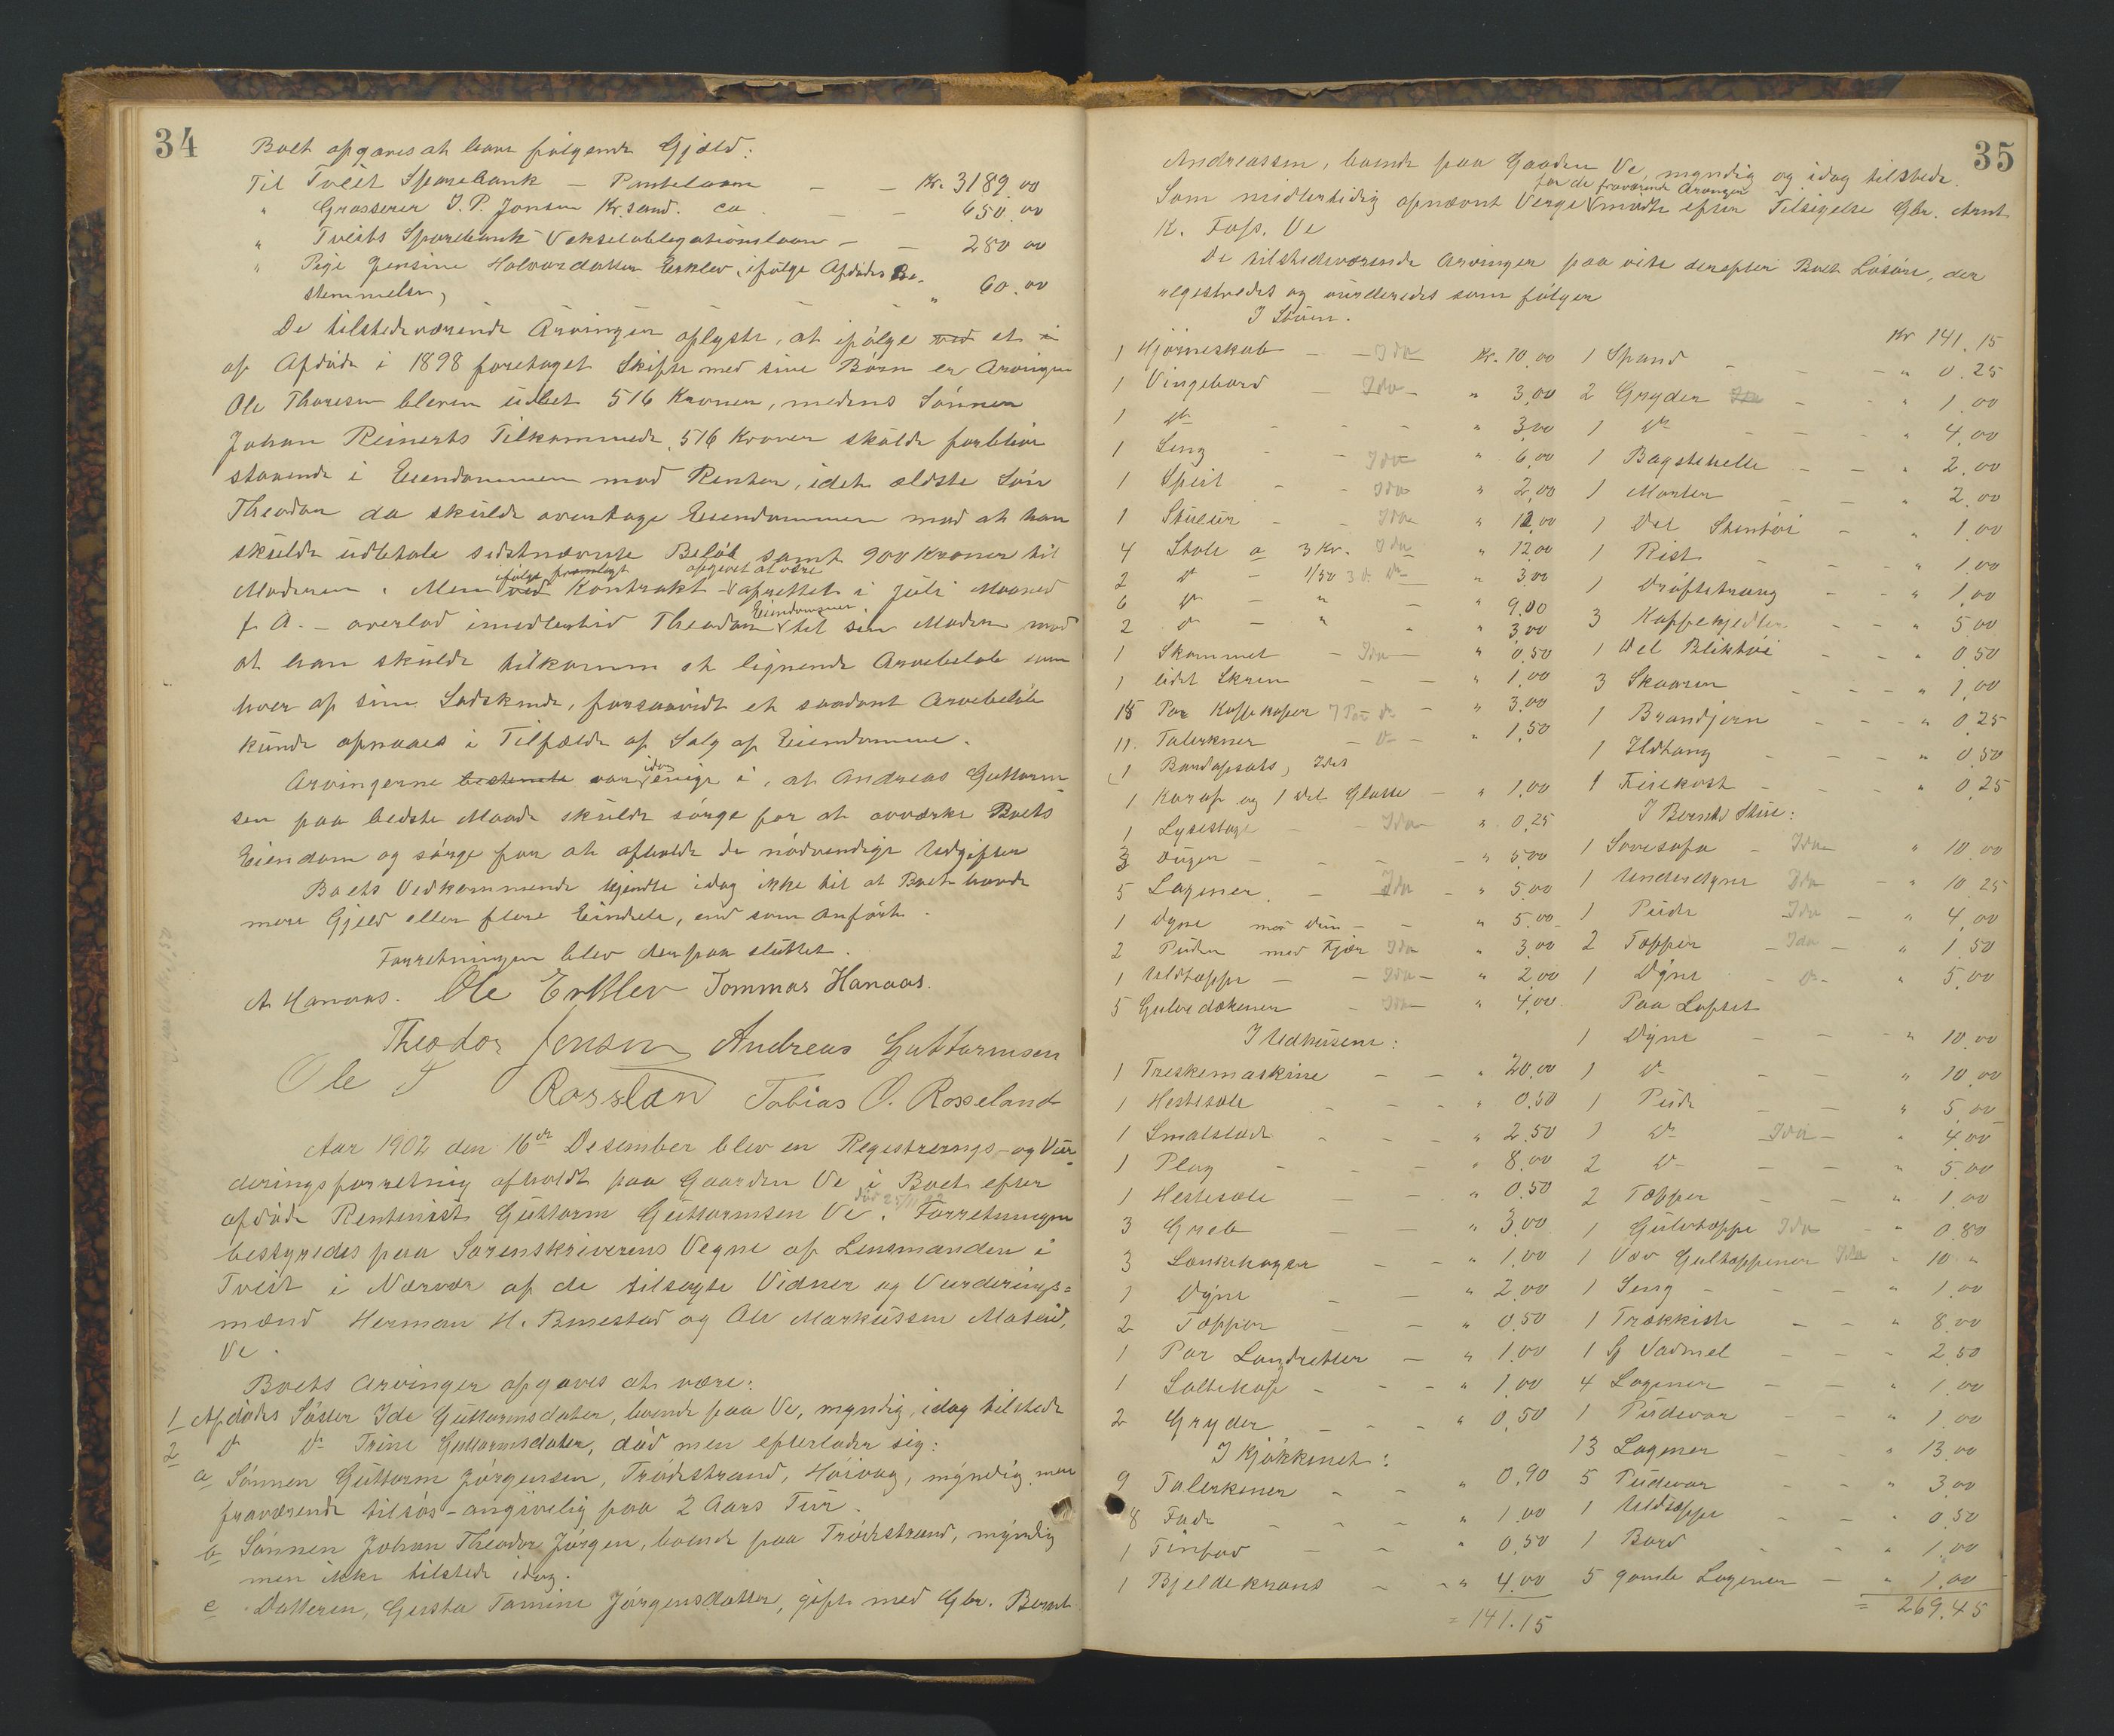 34
Boet opgaves at have følgende Gjæld:
Til Tveit Sparebank – Pantelaan – – Kr. 3189.00
" Grosserer J. P. Jensen Kr.sand. ca. – – 650.00
" Tveits Sparebank Vekselobligationslaan – – 280 00
" Pige Jensine Halvorsdatter Erklev, ifølge Afdødes Be-
stemmelse, " 60.00
De tilstedeværende Arvinger oplyste, at ifølge ved et i
af Afdøde i 1898 foretaget Skifte med sine Børn er Arvingen
Ole Thoresen bleven udbet 516 Kroner, medens Sønnen
Johan Reinerts Tilkommende 516 Kroner skulde forblive
staaende i Eiendommen mod Renter, idet ældste Søn
Theodor da skulde overtage Eiendommen mod at han
skulde udbetale sidstnævnte Beløb samt 900 Kroner til
ifølge fremlagt opgivet at være
Moderen. Men ved Kontrakt oprettet i Juli Maaned
Eiendommen
f. A. – overlod imidlertid Theodor til sin Moder mod
at han skulde tilkomme et lignende Arvebeløb som
hver af sine Sødskende, forsaavidt et saadant Arvebeløb
kunde opnaaes i Tilfælde af Salg af Eiendomme.
idag
Arvingerne bestemte var enige i, at Andreas Guttorm-
sen paa bedste Maade skulde sørge for at avværke Boets
Eiendom og sørge for at afholde de nødvendige Udgifter
Boets Vedkommende kjendte idag ikke til at Boet havde
mere Gjeld eller flere Eiendele, end som anført.
Forretningen blev derpaa sluttet.
A Hanaas. Ole Erklev Tommas Hanaas.
Theodor Jensen Andreas Guttormsen
Ole T Rosslan Tobias O. Rosseland
Aar 1902 den 16de Desember blev en Registrerings- og Vur-
deringsforretning afholdt paa Gaarden Ve i Boet efter
død 25/11 02
afdøde Rentenist Guttorm Guttormsen Ve. Forretningen
bestyredes paa Sorenskriverens Vegne af Lensmanden i
Tveit i Nærvær af de tilsagte Vidner og Vurderings=
mænd Herman H. Bmestad og Ole Markussen Moseid,
Ve.
Boets Arvinger opgaves at være:
1 Afdødes Søster Ide Guttormsdatter, boende paa Ve, myndig, idag tilstede
2 do do Trine Guttormsdatter, død men efterlader sig:
a Sønnen Guttorm Jørgensen, Trødestrand, Høivaag, myndig men
fraværende tilsøs – angivelig paa 2 Aars Tur.
b Sønnen Johan Theodor Jørgen, boende paa Trødestrand, myndig
men ikke tilstede idag.
c Datteren, Gusta Tomine Jørgensdatter, gift med Gbr. Bernt
35
Andreassen, boende paa Gaarden Ve, myndig og idag tilstede.
for de fraværende Arvinger
Som midlertidig opnævnt Verge mødte efter Tilsigelse Gbr. Arnt
K. Foss. Ve
De tilstedeværende Arvinger paa viste derefter Boets Løsøre, der
registredes og vurderedes som følger
I Stuen.
1 Hjørneskab – Ida Kr. 10.00
1 Vingebord – Ida – " 3.00
1 do – – " 3.00
1 Seng – Ida " 6.00
1 Speil – Ida " 2.00
1 Stueur – Ida " 12.00
4 Stole a 3 Kr. Ida " 12.00
2 do – 1/50 3 d. do " 3.00
6 do – " – " 9.00
2 do – " – " 3.00
1 Skammel – Ida " 0.50
1 lidet Skrin – – " 1.00
15 Par Kaffekopper 7 Par do – " 3.00
11. Talerkner – do – " 1.50
1 Bordopsats, Ides
1 Karaf og 1 Del Glasse – " 1.00
1 Lysestage – Ida " 0.25
3 Duger – – " 5.00
5 Lagener. – Ida – " 5.00
1 Dyne med Dun – – " 5.00
2 Puder med Fjær Ida " 3.00
1 Uldtæppe – Ida – " 2.00
5 Gulvedækener – Ida " 4.00
I Udhusene:
1 Treskemaskine – – " 20.00
1 Hestesele – – " 0.50
1 Smalslæde – – " 2.50
1 Plog – – " 8.00
1 Hestesele – – " 0.50
3 Greb – " 3.00
3 Lænkehager – – " 1.00
1 Dyne – – " 2.00
2 Tæpper – – " 0.50
1 Par Landretter – " 1.00
1 Saltekop – – " 1.00
2 Gryder – – " 0.50
I Kjøkkenet:
9 Talerkener – – " 0.90
8 Fade – – " 1.00
1 Tinfad – – " 0.50
1 Bjeldekrans – – " 4.00
= 141.15
Kr 141.15
1 Spand – – " 0.25
2 Gryder Ida – " 1.00
1 do – – " 4.00
1 Bagstehelle – – " 2.00
1 Morter – – " 2.00
1 Del Stentøi – " 1.00
1 Rist – – " 1.00
1 Drøftetraug – – " 1.00
3 Kaffekjedler – – " 5.00
1 Del Bliktøi – – " 0.50
3 Skaarer – – " 1.00
1 Brandjern – – " 0.25
1 Ildtang – – " 0.50
1 Feiekost – – " 0.25
I Bernts Stue:
1 Sovesofa – Ida " 10.00
1 Underdyne Ida – " 10.25
1 Pude Ida – " 4.00
2 Tæpper – Ida – " 1.50
1 Dyne – do – " 5.00
Paa Loftet
1 Dyne – – " 10.00
1 do – – " 10.00
1 Pude – – " 5.00
1 do Ida – " 4.00
2 do – – " 5.00
2 Tæpper – – " 1.00
1 Gulvtæppe Ida – " 0.80
1 Væv Gulvtæppener Ida " 10 "
1 Seng – – " 1.00
1 Trækkiste – – " 8.00
1 St Vadmel – – 2.50
4 Lagener – – " 1.00
1 Pudevar – – " 1.00
13 Lagener – " 13.00
5 Pudevar – – " 3.00
1 Uldtæppe – – " 0.50
1 Bord – – " 1.00
5 gamle Lagener – " 1.00
= 269.45